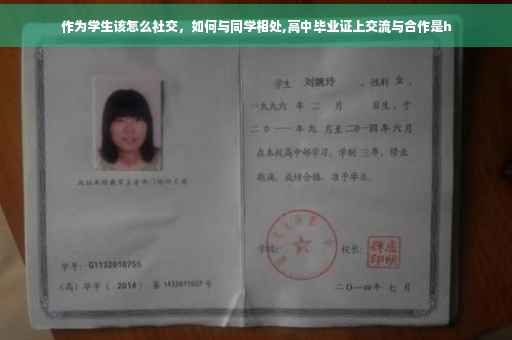 作为学生该怎么社交，如何与同学相处,高中毕业证上交流与合作是h
学生 刘婉玲 ，性别 女 ，
一九九六 年 二 月 日生，于
二0一一年 九 月至 二0一四年 六 月
在本校高中部学习，学制 三年，修业
期满，成绩合格，准予毕业。
学校： 校长：
学号：G1132010755
（高）毕字（ 2014 ）第 1432011027 号
二〇一四年 七 月